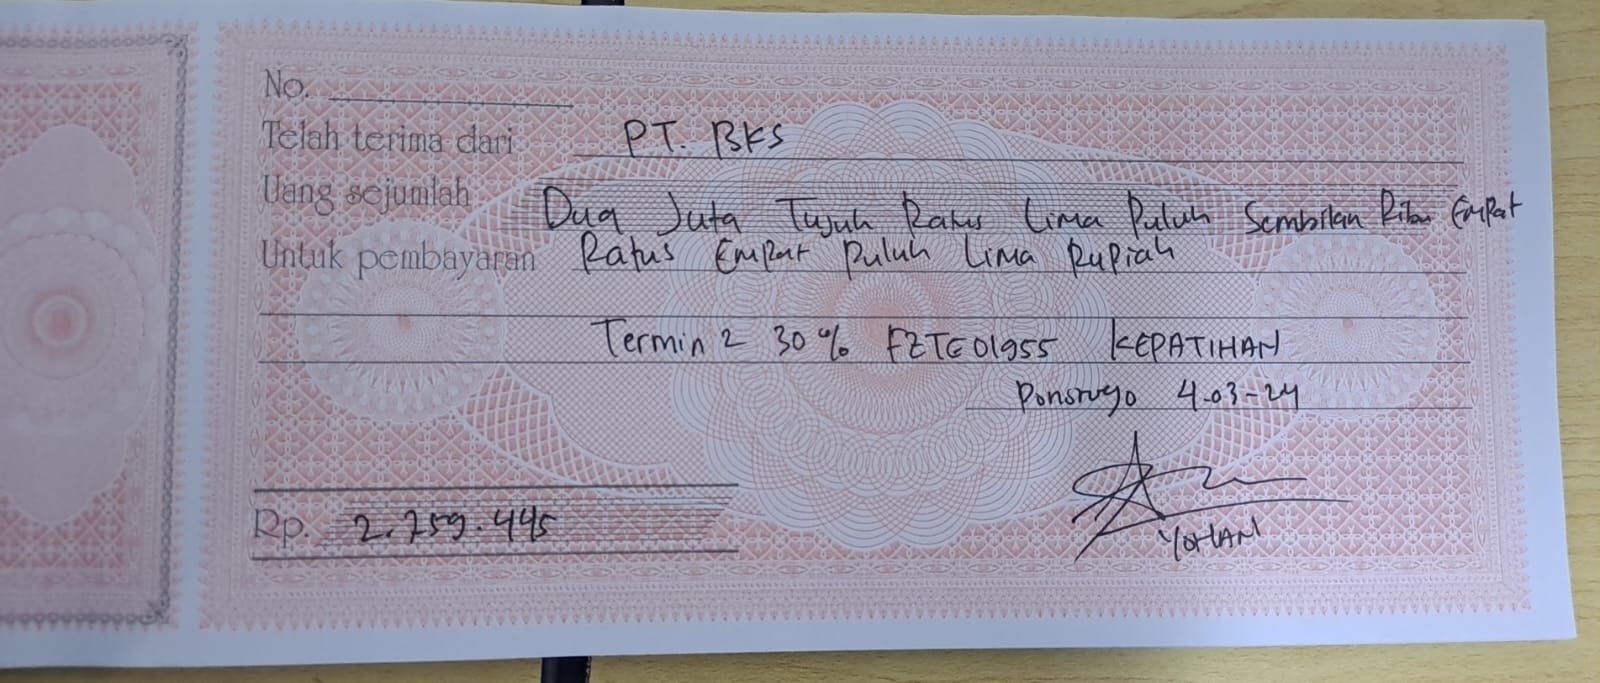 No.
Telah terima dari PT. BKS
Uang sejumlah Dua Juta Tujuh Ratus Lima Puluh Sembilan Ribu Empat
Untuk pembayaran Ratus Empat Puluh Lima Rupiah
Termin 2 30% FZTE01955 KEPATIHAN
Ponorogo 4-03-24
Rp. 2.759.445
YOHAN